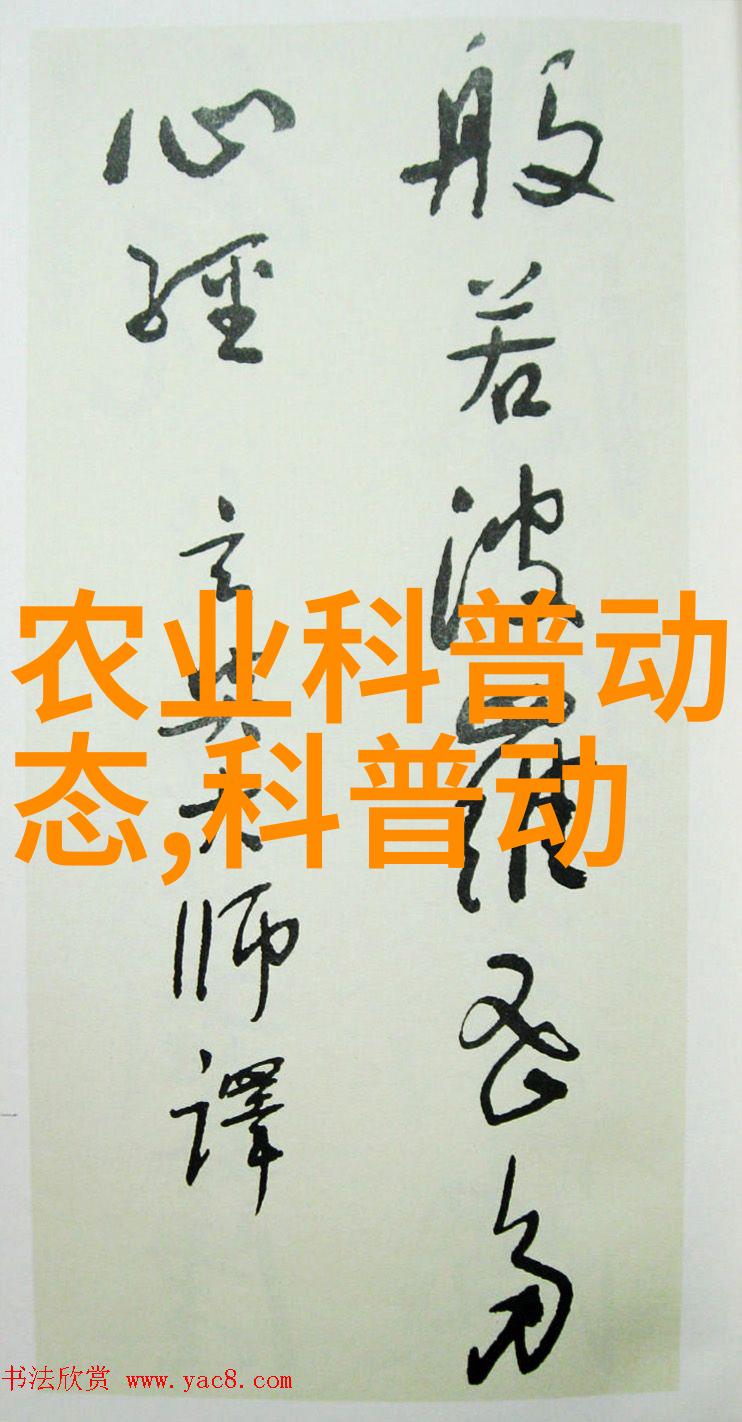 般若波羅蜜多
心經 玄奘大師譯
农业科普动
态,科普动
书法欣赏 www.yac8.com